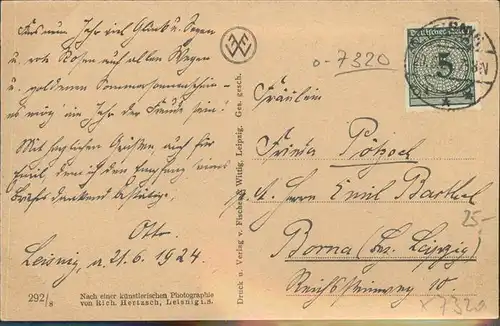 Fürs neue Jahr viel Glück u. Segen
u. rote Rosen auf allen Wegen
u. goldenen Sommersonnenschein -
es mög' ein Jahr der Freude sein!
Mit herzlichen Grüßen auch für
Emil, dem ich den Empfang eines
Briefes dankend bestätige,
Otto.
Leisnig, 21.6.1924.
292/8
Nach einer künstlerischen Photographie
von Rich. Hertzsch, Leisnig i. S.
Druck u. Verlag v. Fischer & Wittig, Leipzig. Ges. gesch.
o-7320
Deutsches Reich
5
Fräulein
Frieda Pötzsch
Herrn Emil Barthel
Borna (Bez. Leipzig)
Reichsstraße 10.
25-
x 7320